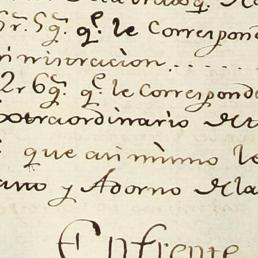 5r. 5g. q.e le Correspond
ministracion....
2r 6g. q.e le Correspond
extraordinario de t
que asimismo le
ano y Adorno de la
Enfrente